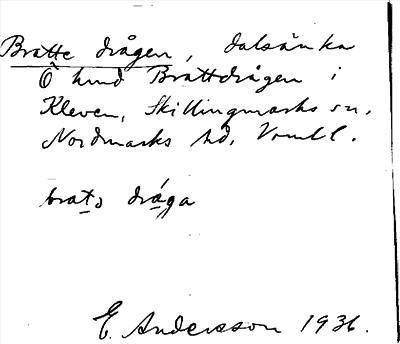 Bratte drågen, dalsänka
Ö hmd Brattdrågen i
Kleven, Skillingmarks sn,
Nordmarks hd, Vrml l.
brats dråga
E. Andersson 1936.